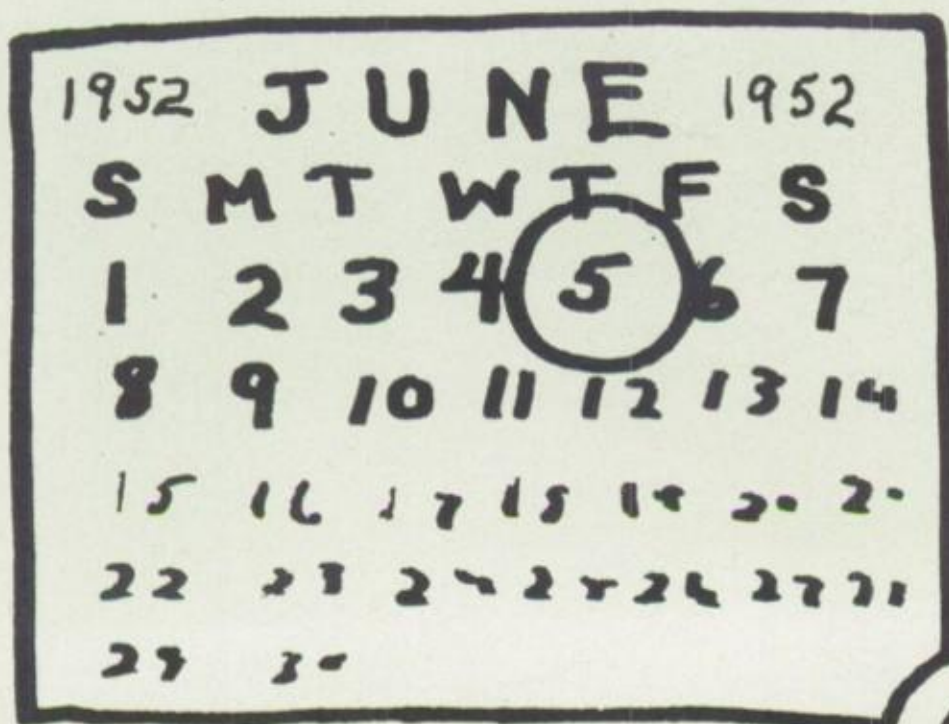 1952 JUNE 1952
S M T W T F S
1 2 3 4 5 6 7
8 9 10 11 12 13 14
15 16 17 18 19 20
22 23 2 2 26 27
29 30